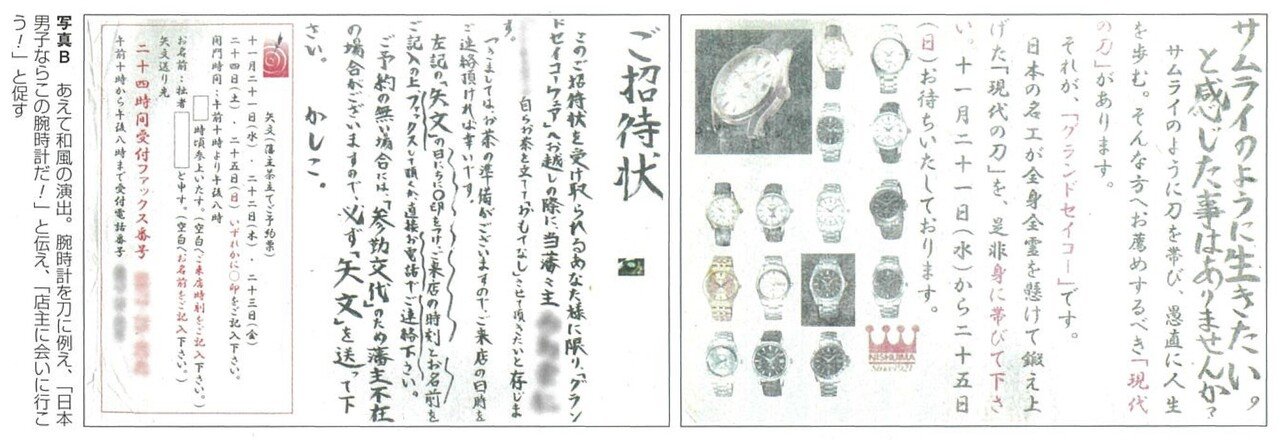 サムライのように生きたい。
と感じた事はありませんか?
サムライのように刀を帯び、愚直に人生
を歩む。そんな方へお薦めするべき「現代
の刀」があります。
それが、「グランドセイコー」です。
日本の名工が全身全霊を懸けて鍛え上
げた「現代の刀」を、是非身に帯びて下さ
い。十一月二十一日(水)から二十五日
(日)お待ちいたしております。
NISHIJIMA
Since 1921
ご招待状
このご招待状を受け取られるあなた様に限り、「グラン
ドセイコーフェア」へお越しの際に、当藩主
自らお茶を立てて「おもてなし」させて頂きたいと存じま
す。
つきましてはお茶の準備がございますのでご来店の日時を
ご連絡頂ければ幸いです。
左記の「矢文」の日にちに〇印を付け、ご来店の時刻とお名前を
ご記入の上ファックスして頂くか、直接お電話でご連絡下さい。
ご予約の無い場合には、「参勤交代」のため藩主不在
の場合がございますので、必ず「矢文」を送って下
さい。 かしこ。
矢文(藩主茶立てご予約票)
十一月二十一日(水)・二十二日(木)・二十三日(金)
二十四日(土)・二十五日(日) いずれかに〇印をご記入下さい。
開門時間:午前十時より午後八時
時頃参上いたす。(空白へご来店時刻をご記入下さい。)
お名前:拙者 と申す。(空白へお名前をご記入下さい。)
矢文送り先
二十四時間受付ファックス番号
午前十時から午後八時まで受付電話番号
写真B あえて和風の演出。腕時計を刀に例え、「日本
男子ならこの腕時計だ!」と伝え、「店主に会いに行こ
う!」と促す